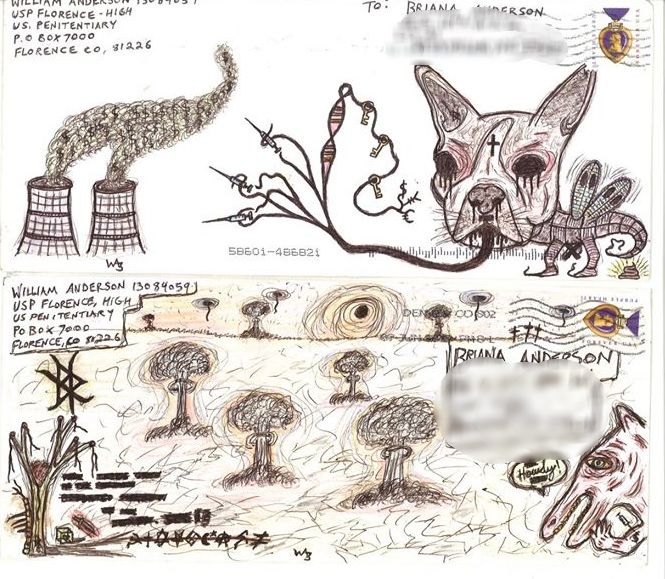 WILLIAM ANDERSON 13084059
USP FLORENCE-HIGH
US. PENITENTIARY
P.O BOX 7000
FLORENCE CO, 81226
TO: BRIANA ANDERSON
58601-486821
WILLIAM ANDERSON 13084059
USP FLORENCE, HIGH
US PENITENTIARY
PO BOX 7000
FLORENCE, CO 81226
DENVER CO 802
PURPLE HEART
FOREVER USA
BRIANA ANDERSON
Howdy!